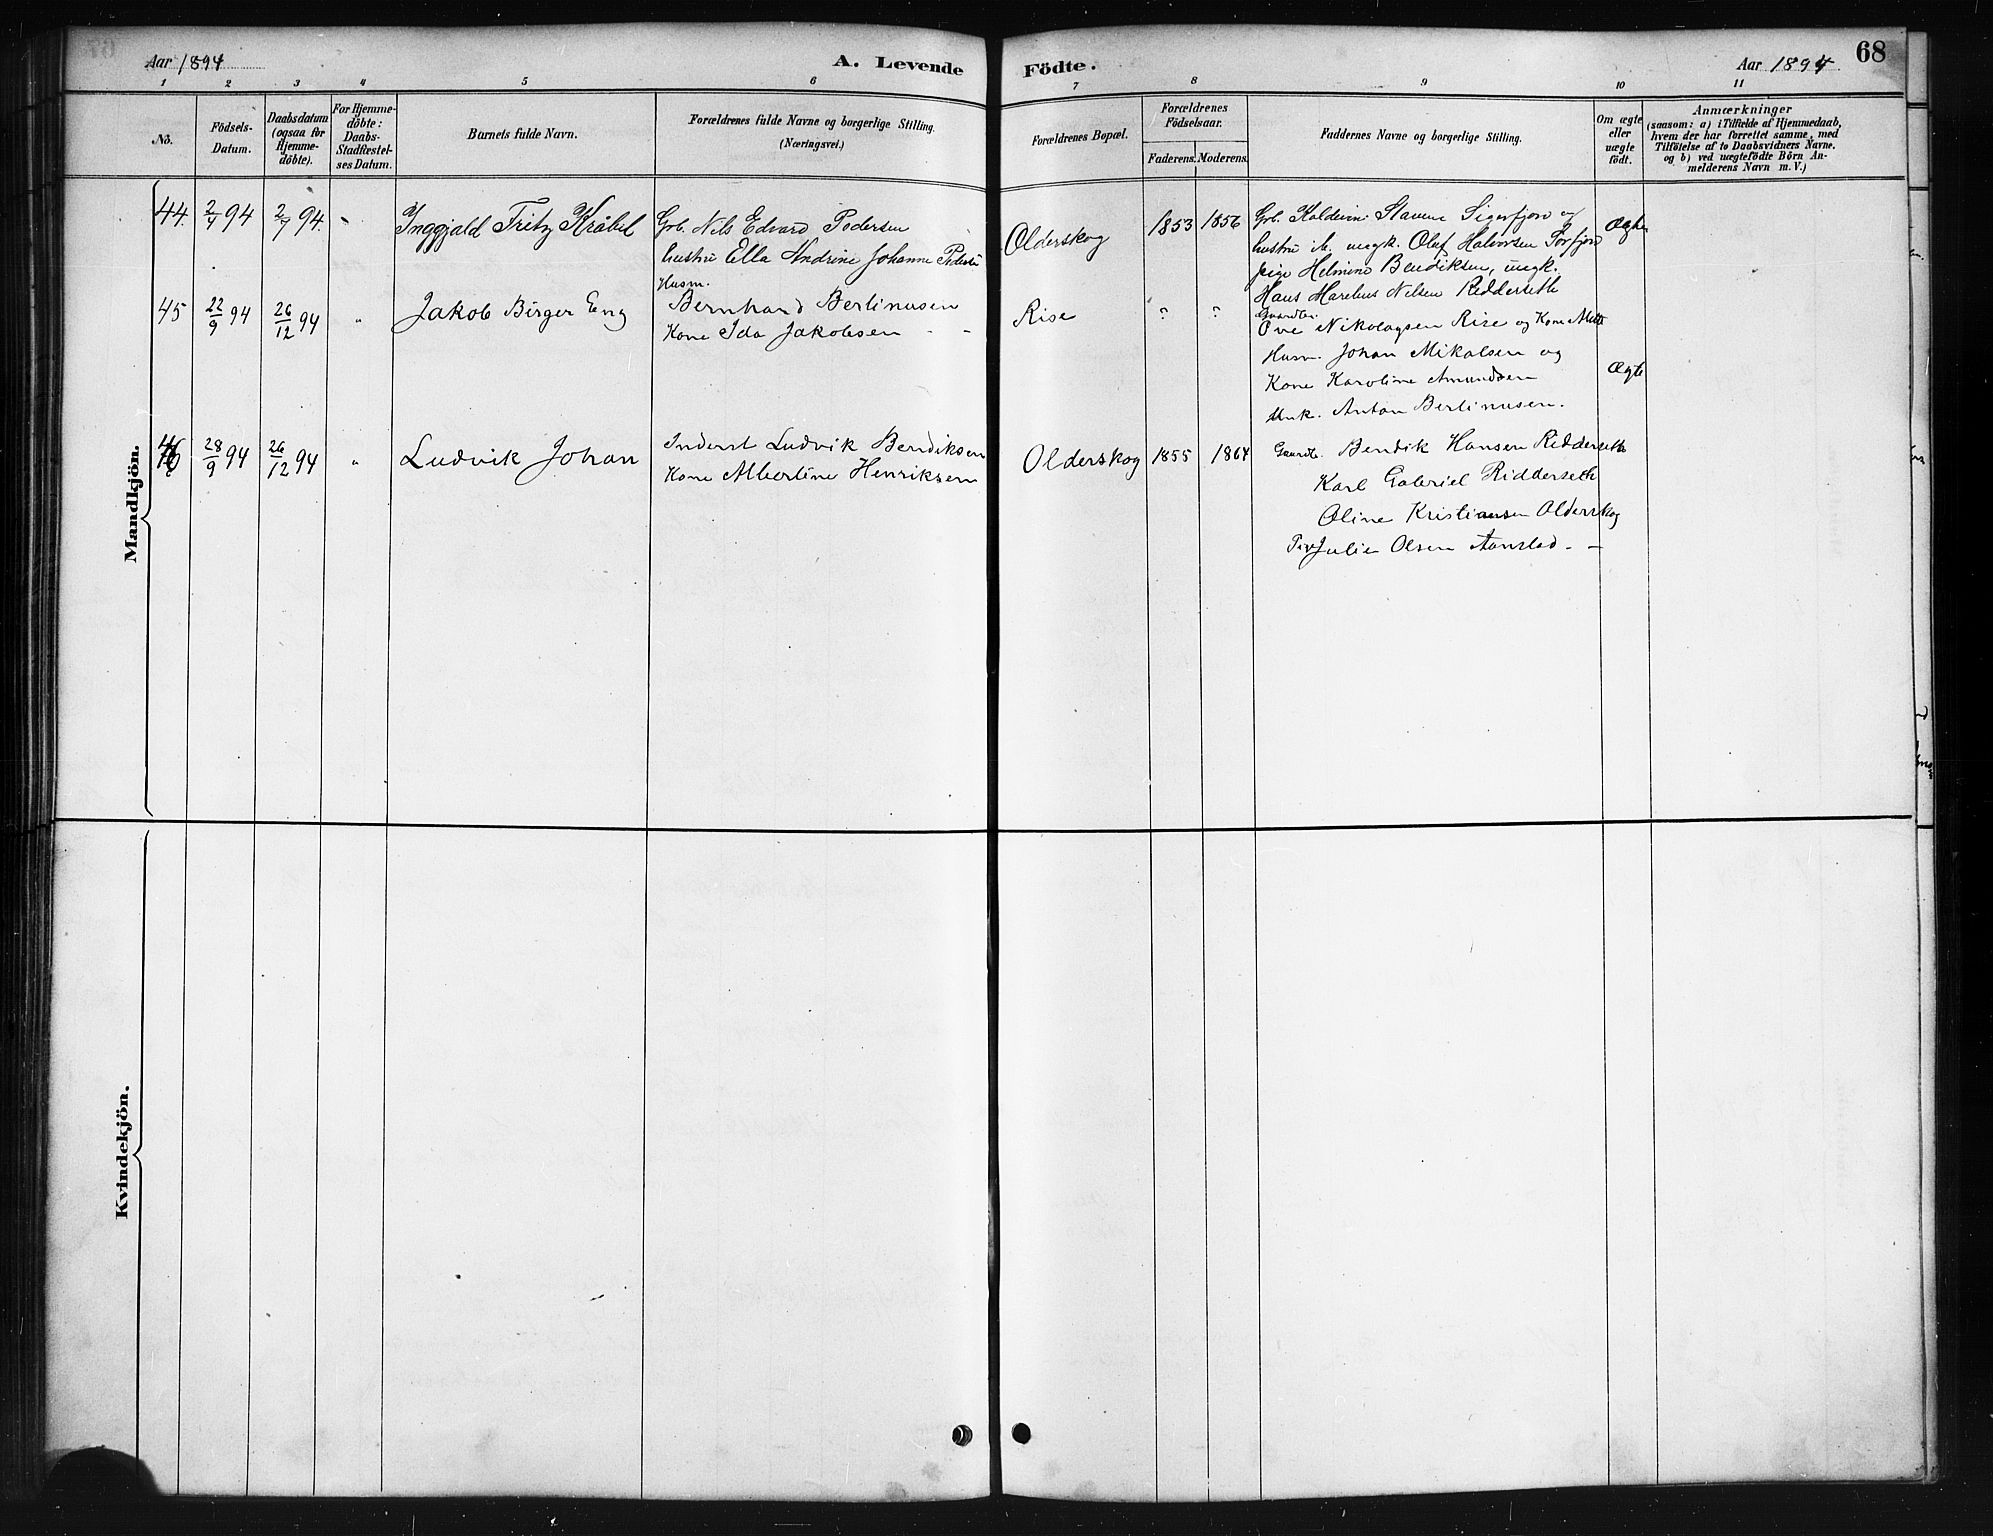 Aar 1894
A. Levende
Födte.
Aar 1894
68
1 2 3 4 5 6 7 8 9 10 11
No.
Födsels-
Datum.
Daabsdatum
(ogsaa for
Hjemme-
döbte).
For Hjemme-
döbte:
Daabs-
Stadfæstel-
ses Datum.
Barnets fulde Navn.
Forældrenes fulde Navne og borgerlige Stilling.
(Næringsvei.)
Forældrenes Bopæl.
Forældrenes
Födselsaar.
Faderens. Moderens.
Faddernes Navne og borgerlige Stilling.
Om ægte
eller
uægte
födt.
Anmærkninger
(saasom: a) i Tilfælde af Hjemmedaab,
hvem der har forrettet samme, med
Tilföielse af to Daabsvidners Navne.
og b) ved uægtefödte Börn An-
melderens Navn m. V.)
Mandkjön.
44. 2/4 94 2/7 94. Inggjald Fritz Kråbel
Grb. Nils Edvard Pedersen
hustru Ella Andrine Johanne
Olderskog 1853 1856
Grb. Sigerfjord og
hustru ungk. Olaf Halvorsen
pige Helmine Bendiksen, ungk.
Hans Nilsen Ridderseth
45 22/9 94 26/12 94 " Jakob Birger Eng
Husm.
Bernhard Berlinusen
Kone Ida Jakobsen - -
Rise ? ?
Ove Nikolaysen Rise og Kone Mette
Husm. Johan Mikalsen og
Kone Karoline Amundsen
Unk. Anton Berlinusen.
Ægte
46 28/9 94 26/12 94 " Ludvik Johan
Inderst Ludvik Bendiksen
Kone Albertine Henriksen
Olderskog 1855 1864
Gaardb. Bendik Hansen Ridderseth
Karl Gabriel Ridderseth
Oline Kristiansen Olderskog
Pige Julie Olsen Aanstad - -
Kvindekjön.